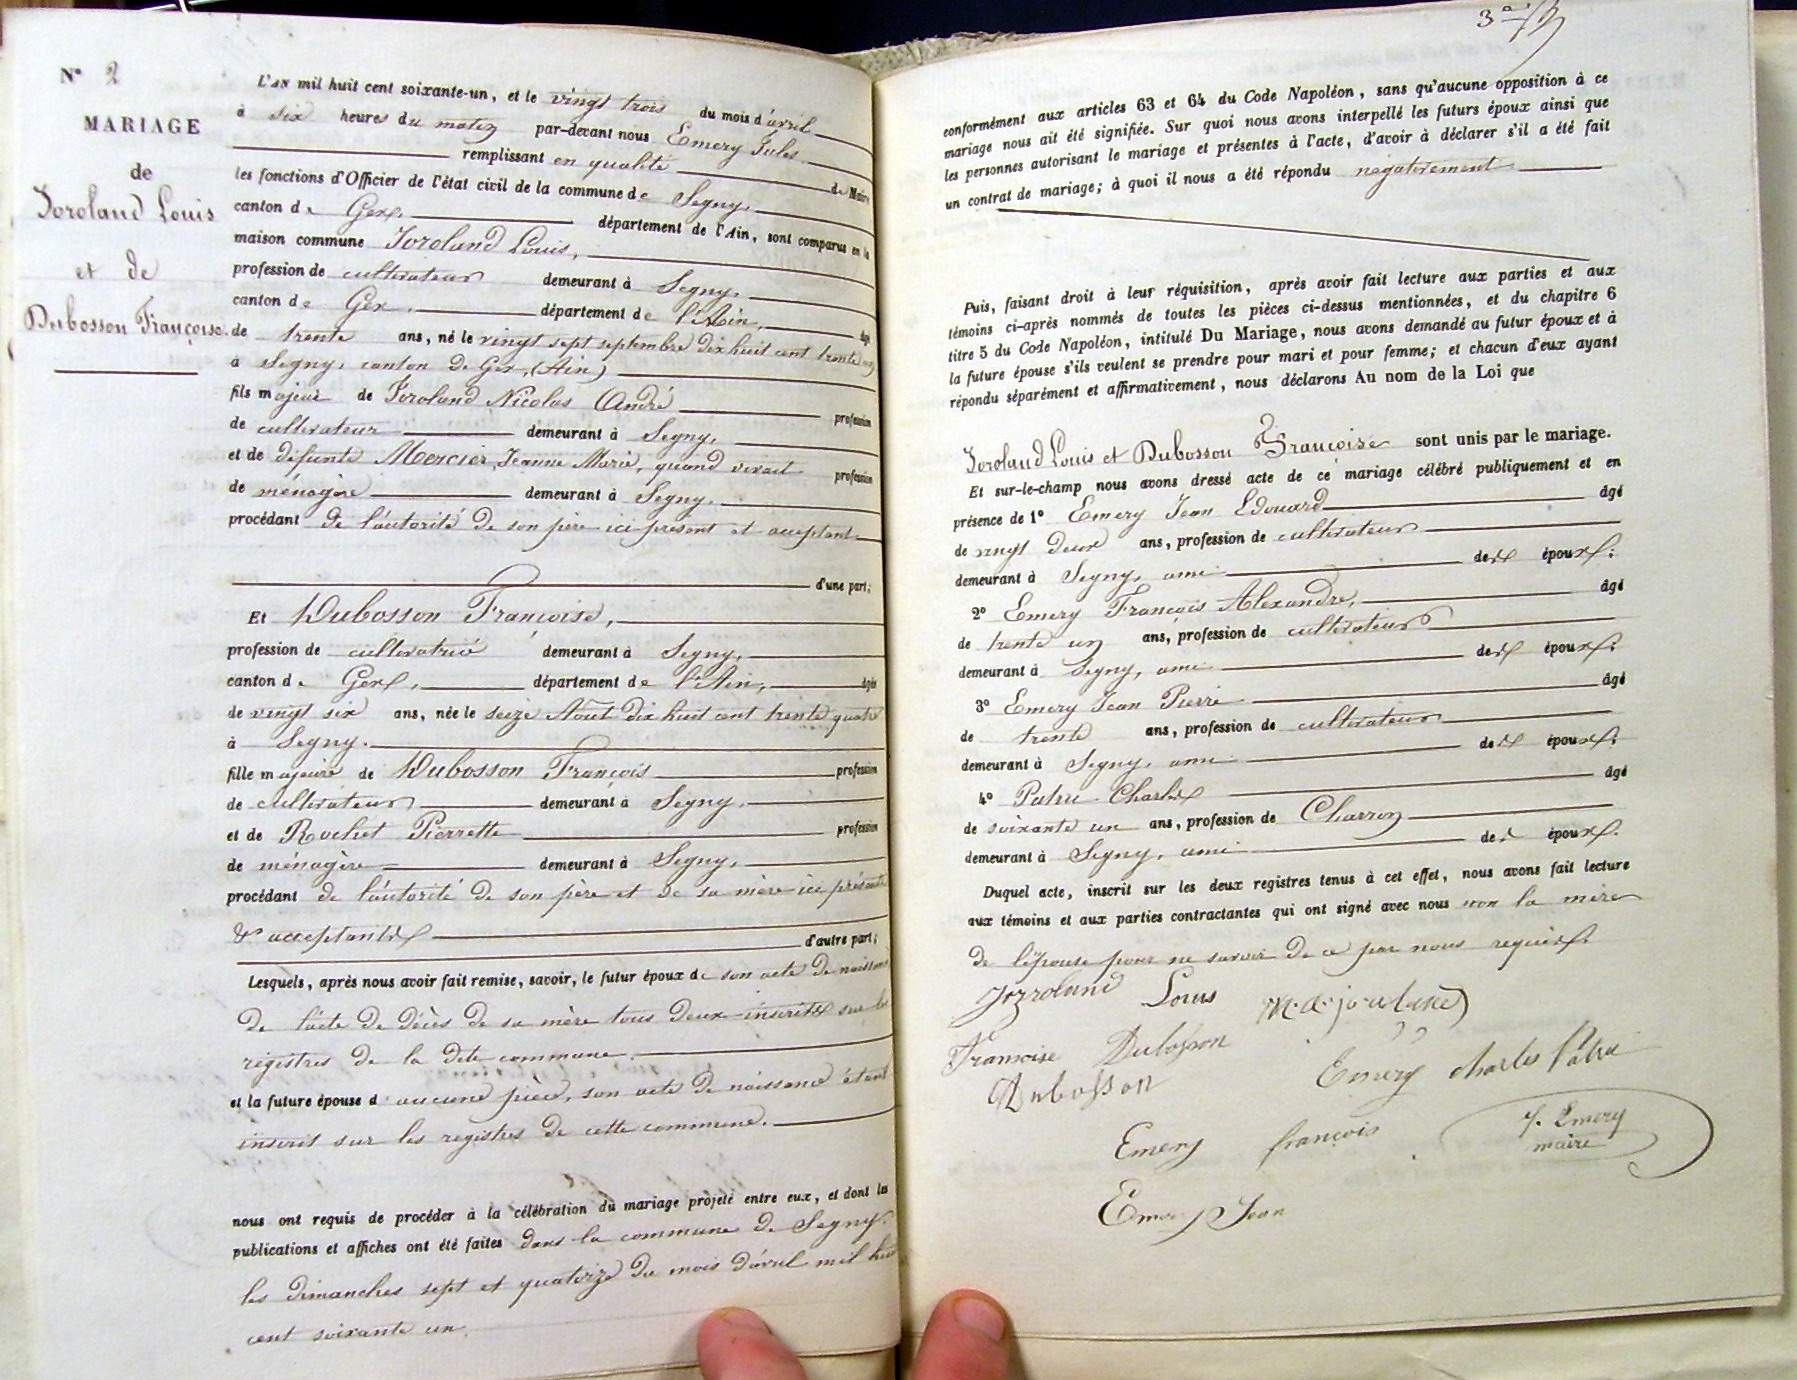 N° 2
MARIAGE
de
Joroland Louis
et de
Dubosson Françoise.
L'AN mil huit cent soixante-un, et le vingt trois du mois d'avril
à six heures du matin par-devant nous Emery Jules
remplissant en qualité de Maire
les fonctions d'Officier de l'état civil de la commune de Segny,
canton de Gex, département de l'Ain, sont comparus en la
maison commune Joroland Louis,
profession de cultivateur demeurant à Segny,
canton de Gex, département de l'Ain, âgé
de trente ans, né le vingt sept septembre dix huit cent trente
à Segny, canton de Gex, (Ain)
fils majeur de Joroland Nicolas André profession
de cultivateur demeurant à Segny,
et de défunte Mercier Jeanne Marie, quand vivait profession
de ménagère demeurant à Segny,
procédant de l'autorité de son père ici présent et acceptant
d'une part;
Et Dubosson Françoise,
profession de cultivatrice demeurant à Segny,
canton de Gex, département de l'Ain, âgée
de vingt six ans, née le seize Août dix huit cent trente quatre
à Segny.
fille majeure de Dubosson François profession
de cultivateur demeurant à Segny,
et de Rochet Pierrette profession
de ménagère demeurant à Segny,
procédant de l'autorité de son père et de sa mère ici présents
& acceptants d'autre part;
Lesquels, après nous avoir fait remise, savoir, le futur époux de son acte de naissance
de l'acte de décès de sa mère tous deux inscrits sur les
régistres de la dite commune.
et la future épouse d'aucune pièce, son acte de naissance étant
inscrit sur les registres de cette commune.
nous ont requis de procéder à la célébration du mariage projeté entre eux, et dont les
publications et affiches ont été faites dans la commune de Segny
les dimanches sept et quatorze du mois d'avril mil huit
cent soixante un.
conformément aux articles 63 et 64 du Code Napoléon, sans qu'aucune opposition à ce
mariage nous ait été signifiée. Sur quoi nous avons interpellé les futurs époux ainsi que
les personnes autorisant le mariage et présentes à l'acte, d'avoir à déclarer s'il a été fait
un contrat de mariage; à quoi il nous a été répondu négativement
Puis, faisant droit à leur réquisition, après avoir fait lecture aux parties et aux
témoins ci-après nommés de toutes les pièces ci-dessus mentionnées, et du chapitre 6
titre 5 du Code Napoléon, intitulé Du Mariage, nous avons demandé au futur époux et à
la future épouse s'ils veulent se prendre pour mari et pour femme; et chacun d'eux ayant
répondu séparément et affirmativement, nous déclarons Au nom de la Loi que
Joroland Louis et Dubosson Françoise sont unis par le mariage.
Et sur-le-champ nous avons dressé acte de ce mariage célébré publiquement et en
présence de 1° Emery Jean Edouard âgé
de vingt deux ans, profession de cultivateur
demeurant à Segny, ami des époux.
2° Emery François Alexandre, âgé
de trente un ans, profession de cultivateur
demeurant à Segny, ami des époux.
3° Emery Jean Pierre âgé
de trente ans, profession de cultivateur
demeurant à Segny, ami des époux.
4° Patru Charles âgé
de soixante un ans, profession de Charron
demeurant à Segny, ami des époux.
Duquel acte, inscrit sur les deux registres tenus à cet effet, nous avons fait lecture
aux témoins et aux parties contractantes qui ont signé avec nous non la mère
de l'épouse pour ne savoir de ce par nous requise.
Jozroland Louis
Françoise Dubosson
Dubosson
Emery charles Patru
Emery françois
J. Emery
maire
Emery Jean